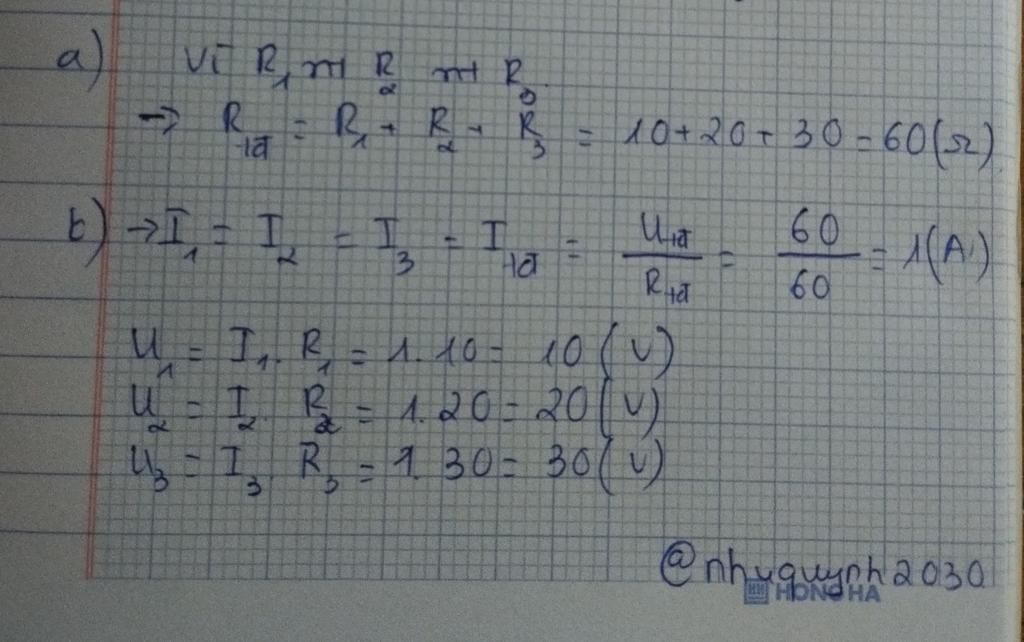 a) Vì R₁ nt R₂ nt R₃
→ R_tđ = R₁ + R₂ + R₃ = 10 + 20 + 30 = 60 (Ω)
b) → I₁ = I₂ = I₃ = I_tđ = U_tđ / R_tđ = 60 / 60 = 1 (A)
U₁ = I₁. R₁ = 1. 10 = 10 (V)
U₂ = I₂. R₂ = 1. 20 = 20 (V)
U₃ = I₃. R₃ = 1. 30 = 30 (V)
@nhuquynh2030
HH HONG HA